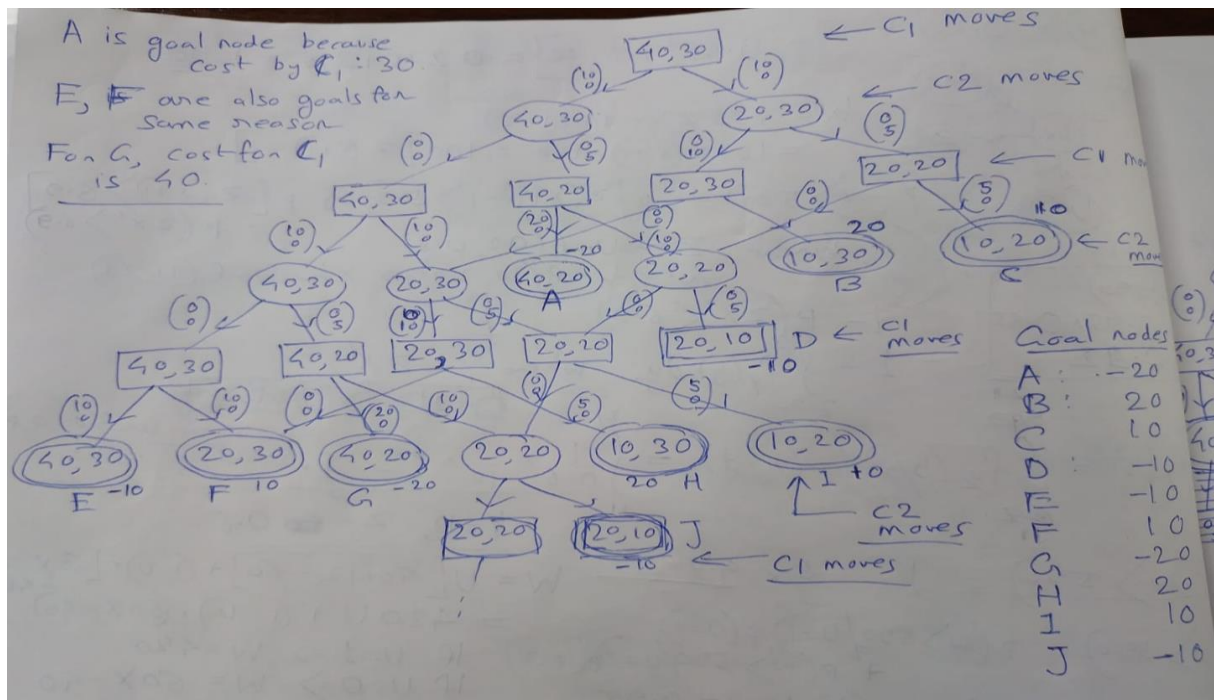 A is goal node because
cost by C1 : 30
E, F are also goals for
same reason
For G, cost for C1
is 40.
40,30
← C1 moves
(10 0)
(10 0)
← C2 moves
40,30
20,30
(0 0)
(0 5)
(0 10)
(0 5)
40,30
40,20
20,30
20,20
← C1 mo
(10 0)
(10 0)
(20 0)
(0 0)
(10 0)
(0 0)
(5 0)
-20
20
10
40,30
20,30
40,20
20,20
10,30
10,20
← C2 mo
A
B
C
(0 0)
(0 5)
(0 10)
(0 5)
(0 0)
(0 5)
40,30
40,20
20,30
20,20
20,10
D
← C1 moves
-10
(10 0)
(10 0)
(0 0)
(20 0)
(10 0)
(5 0)
(5 0)
40,30
20,30
40,20
20,20
10,30
10,20
E -10
F 10
G -20
20 H
I 10
C2 moves
20,20
20,10
J
-10
← C1 moves
Goal nodes
A : -20
B : 20
C 10
D : -10
E -10
F 10
G -20
H 20
I 10
J -10